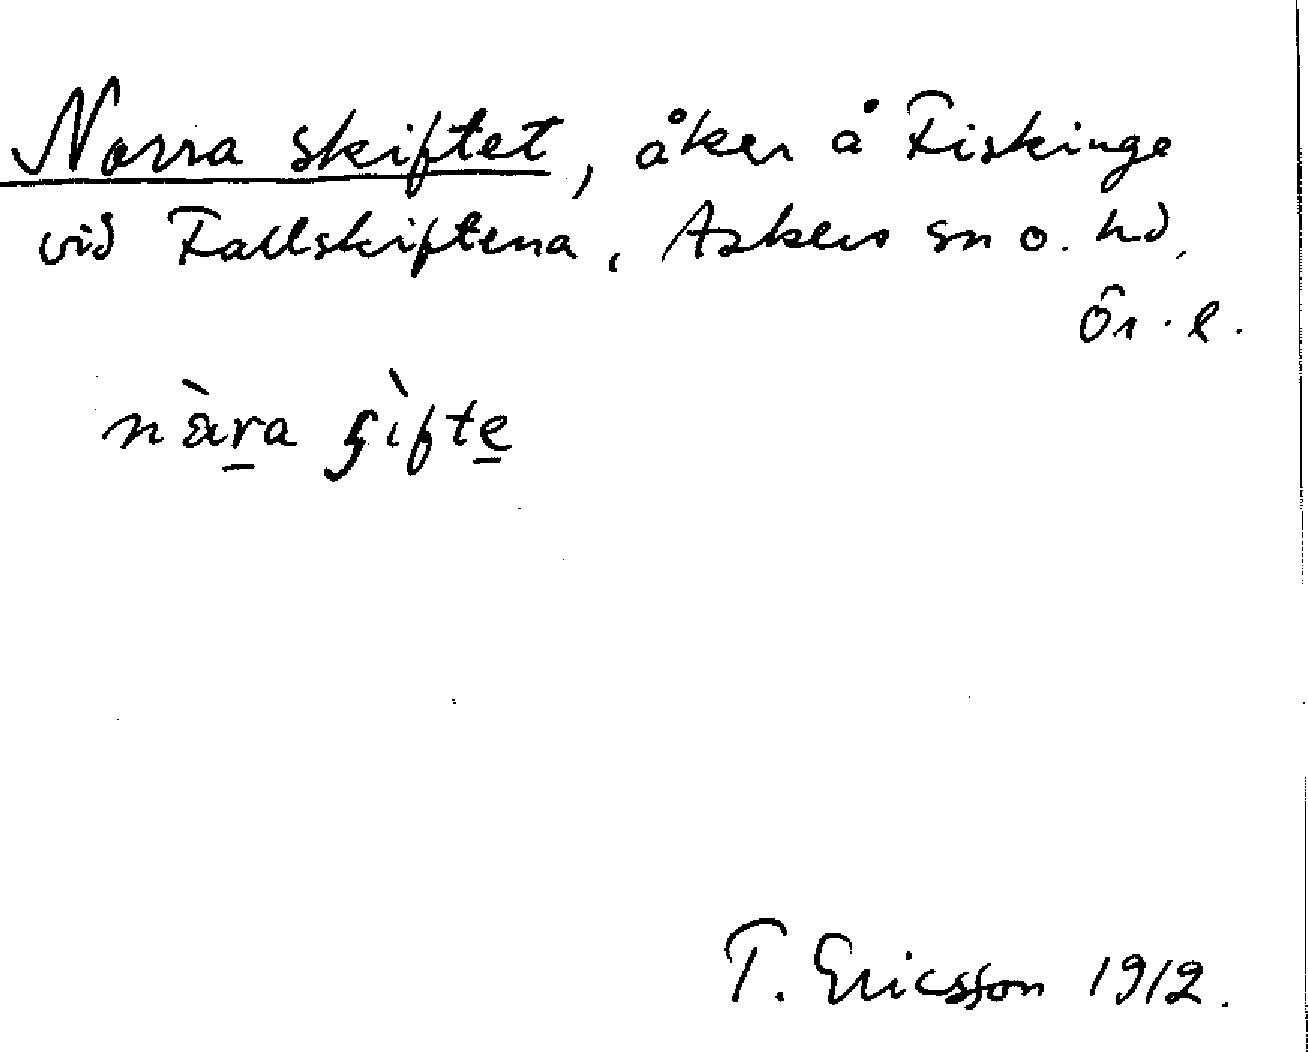 Norra skiftet, åker å Fiskinge
vid Fallskiftena, Askers sn o. hd,
Ör. l.
nàra ʂìfte
T. Ericsson 1912.